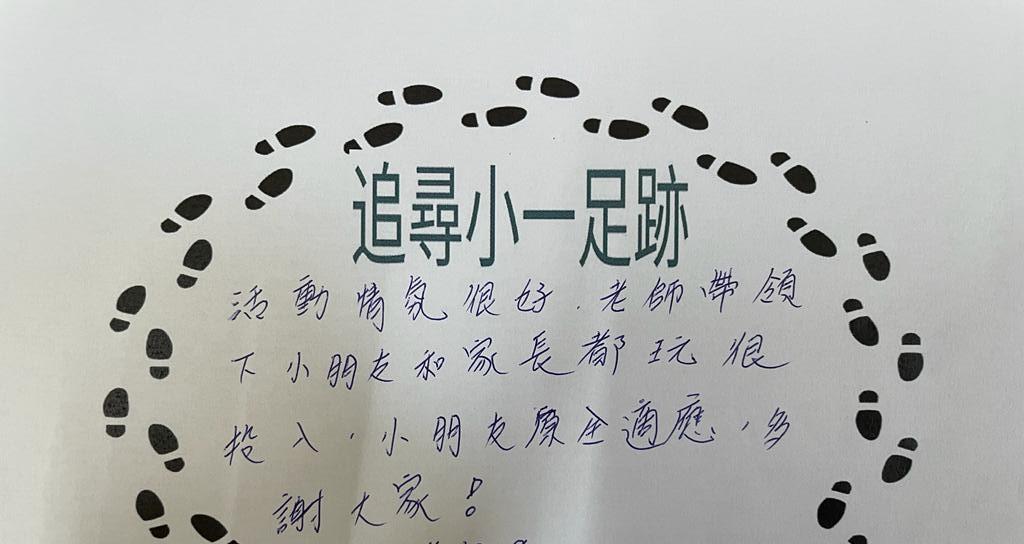 追尋小一足跡
活動情氛很好.老師帶領
下小朋友和家長都玩很
投入,小朋友原全適應,多
謝大家!